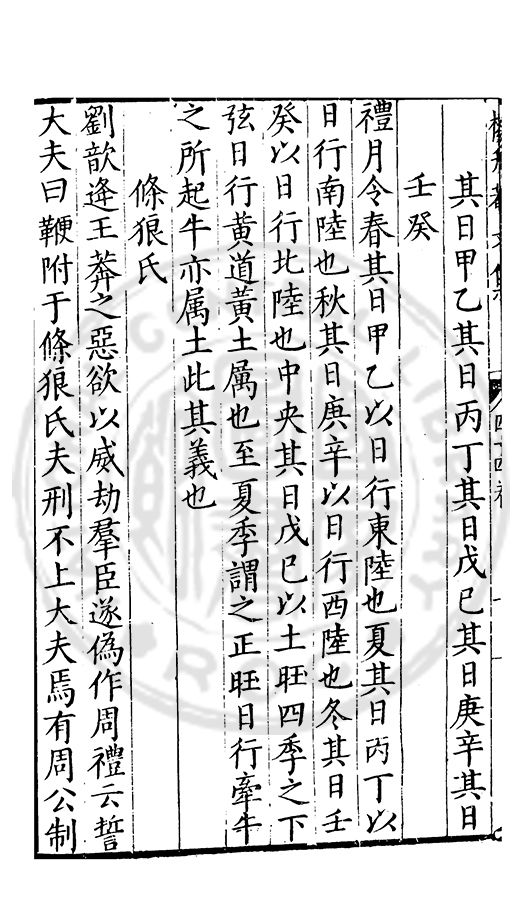 其日甲乙其日丙丁其日戊巳其日庚辛其日
壬癸
禮月令春其日甲乙以日行東陸也夏其日丙丁以
日行南陸也秋其日庚辛以日行西陸也冬其日壬
癸以日行北陸也中央其日戊巳以土旺四季之下
弦日行黄道黄土属也至夏季謂之正旺日行牽牛
之所起牛亦属土此其義也
條狼氏
劉歆逄王莽之惡欲以威劫羣臣遂偽作周禮云誓
大夫曰鞭附于條狼氏夫刑不上大夫焉有周公制